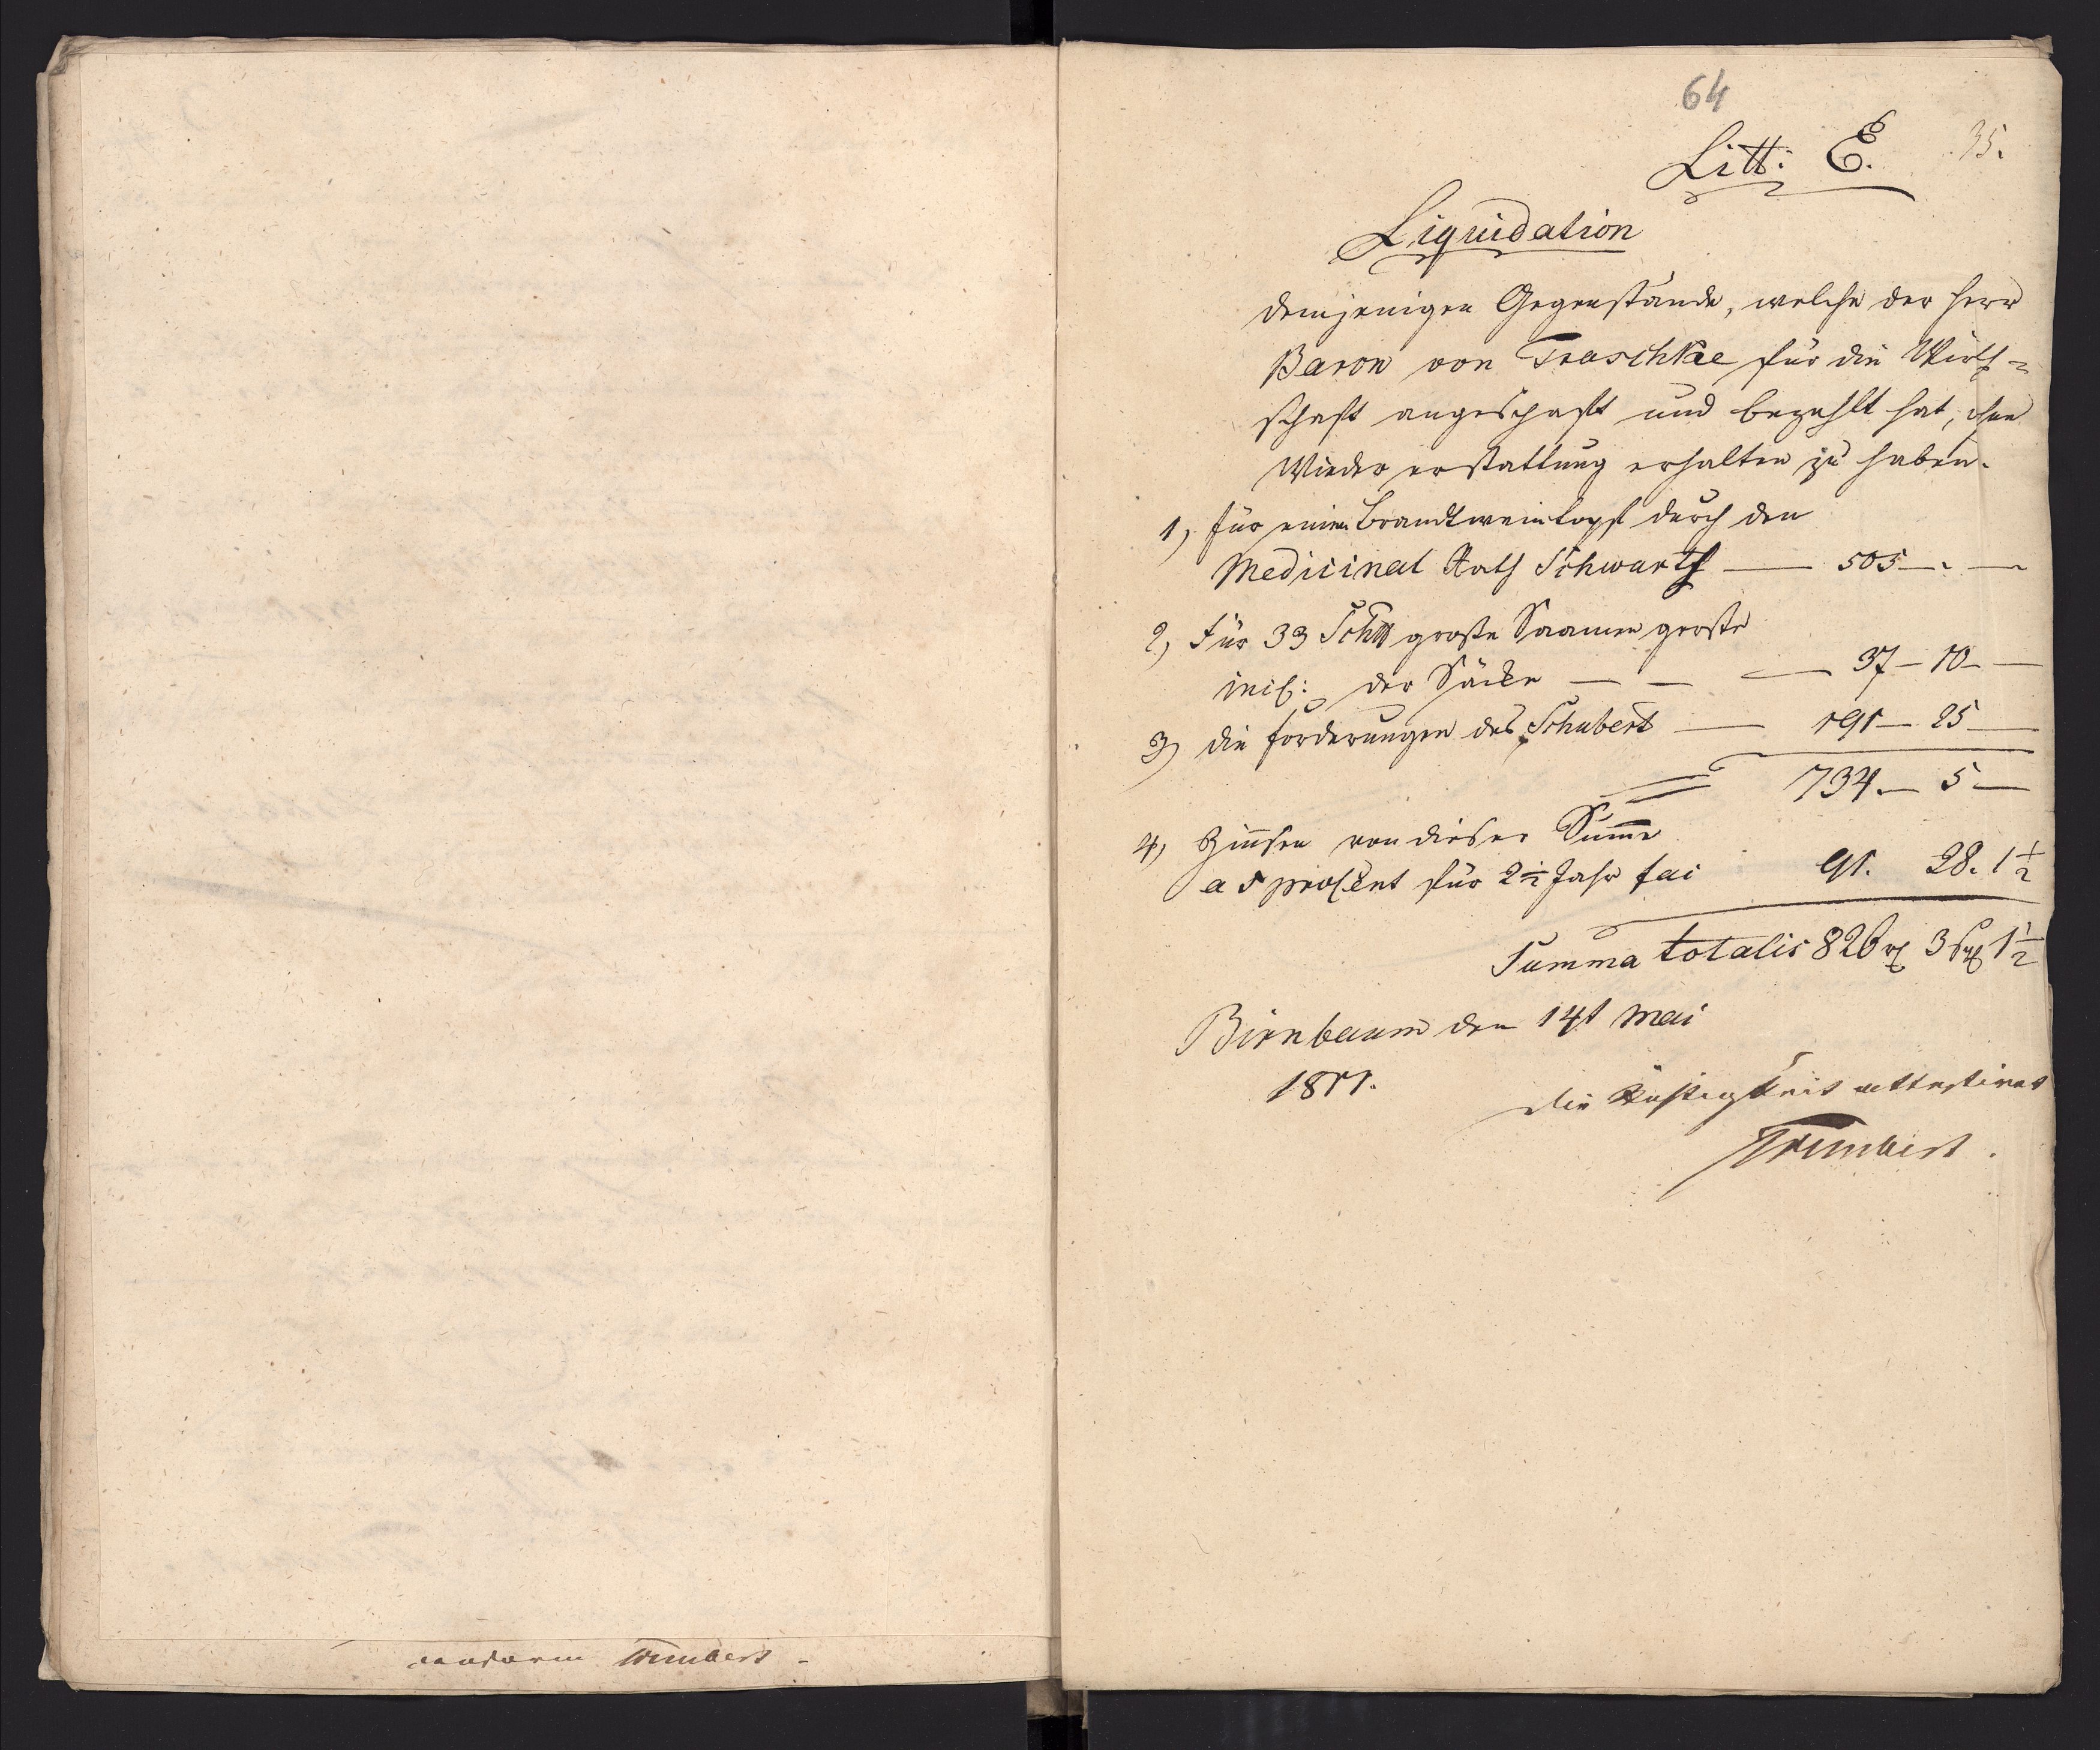 conform Trumbert -
64
Litt: E. 35.
Liquidation
demjenigen Gegenstände, welche der Herr
Baron von Troschke für die Wirth=
schaft angeschafft und bezahlt hat, ohne
Wieder erstattung erhalten zu haben.
1, für einen Brandtweintopf durch den
Medicinal Rath Schwartz — 505 — . —
2, Für 33 Schffl große Saamen gerste
incl: der Säcke — — — 37 — 10 —
3, die forderungen des Schubert — 191 — 25 —
734. — 5 —
4, Zinsen von dieser Summe
a 5 procent für 2 1/2 Jahr fac 91. 28. 1 1/2
Summa totalis 826 rt 3 sgr 1 1/2
Birnbaum den 14t Mai
1811.
die Richtigkeit attestiret
Trumbert.